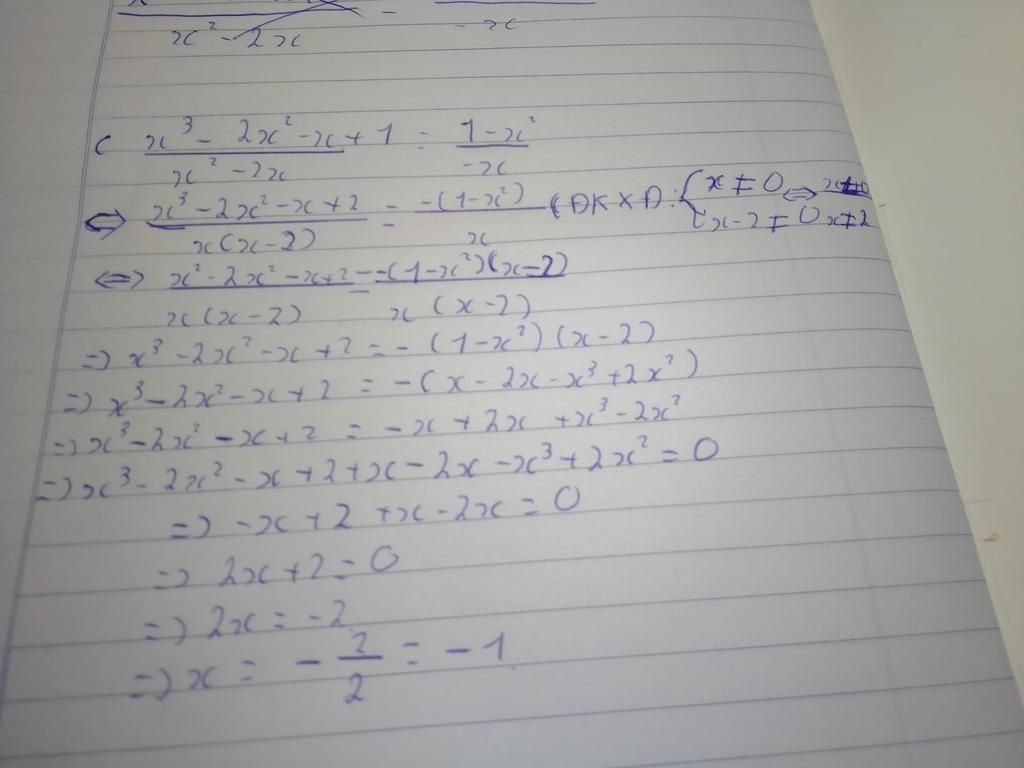 x² - 2x - x
c (x³ - 2x² - x + 1)/(x² - 2x) = (1 - x²)/(-x)
⇔ (x³ - 2x² - x + 2)/(x(x - 2)) = (-(1 - x²))/x (ĐKXĐ: {x ≠ 0 ⇔ x ≠ 0
x - 2 ≠ 0 x ≠ 2
⇔ (x² - 2x² - x + 2)/(x(x - 2)) = (-(1 - x²)(x - 2))/(x(x - 2))
=> x³ - 2x² - x + 2 = -(1 - x²)(x - 2)
=> x³ - 2x² - x + 2 = -(x - 2x - x³ + 2x²)
=> x³ - 2x² - x + 2 = -x + 2x + x³ - 2x²
=> x³ - 2x² - x + 2 + x - 2x - x³ + 2x² = 0
=> -x + 2 + x - 2x = 0
=> 2x + 2 = 0
=> 2x = -2
=> x = -2/2 = -1